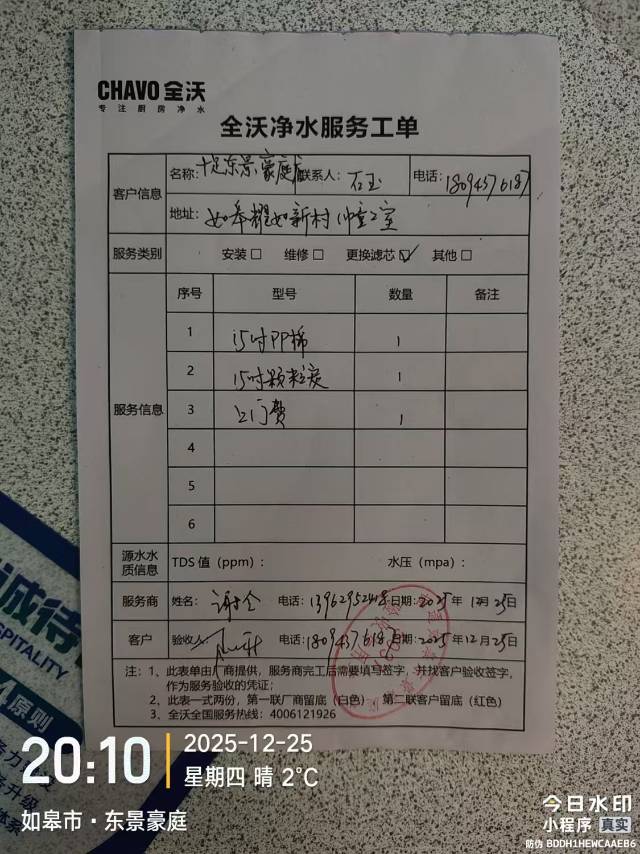 CHAVO 全沃
专注厨房净水
全沃净水服务工单
客户信息
名称: 东景豪庭店 联系人: 石玉 电话: 18094576187
地址: 如皋 如新村
服务类别 安装□ 维修□ 更换滤芯☑ 其他□
服务信息
序号 型号 数量 备注
1 15吋PP棉 1
2 15吋颗粒炭 1
3 上门费 1
4
5
6
源水水质信息 TDS值(ppm): 水压(mpa):
服务商 姓名: 电话: 13962952418 日期: 2025年12月25日
客户 验收人: 电话: 18094576187 日期: 2025年12月25日
注: 1、此表单由厂商提供,服务商完工后需要填写签字,并找客户验收签字,
作为服务验收的凭证;
2、此表一式两份,第一联厂商留底(白色) 第二联客户留底(红色)
3、全沃全国服务热线: 4006121926
诚待
SPITALITY
原则
20:10
2025-12-25
星期四 晴 2℃
如皋市·东景豪庭
今日水印
小程序 真实
防伪 BDDH1HEWCAAEB6